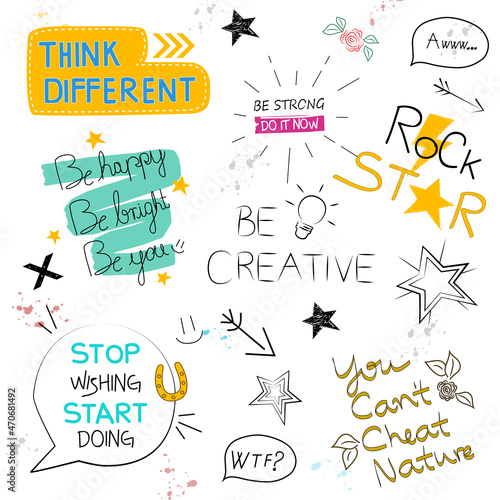 THINK
DIFFERENT
BE STRONG
DO IT NOW
Awww...
ROCK
STAR
Be happy
Be bright
Be you
BE
CREATIVE
STOP
WISHING
START
DOING
WTF?
You
Can't
Cheat
Nature
Adobe Stock | #470681492